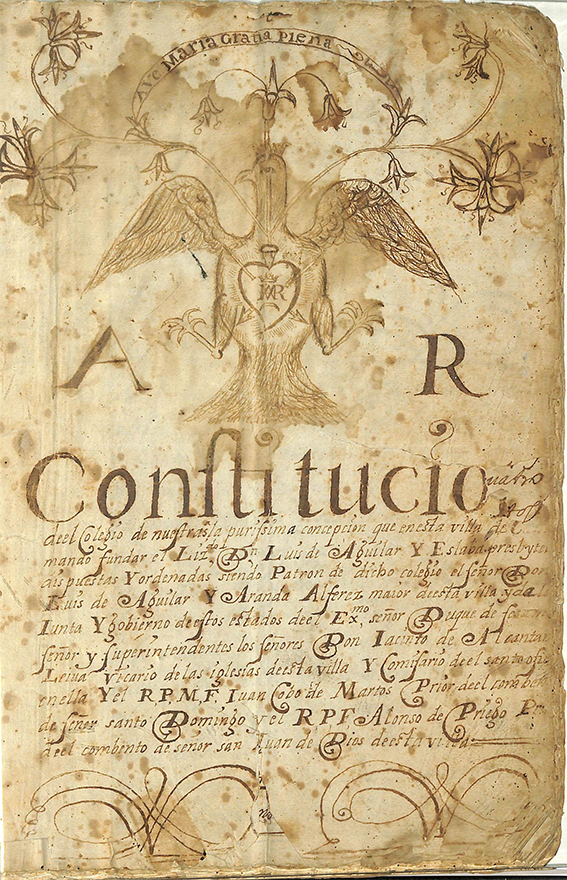 Ave Maria Gratia plena
MAR
A R
Constitucio
deel Colegio de nuestra sª la purissima concepcion que enesta villa de
mando fundar el Lizdo Dn Luis de Aguilar Y Eslaba presbyte
dispuestas Y ordenadas siendo Patron de dicho colegio el señor Don
Luis de Aguilar Y Aranda Alferez maior deesta villa y de la
Iunta Y gobierno de estos estados deel Exmo señor Duque de
señor y superintendentes los señores Don Iacinto de Alcantar
Leiua vicario de las iglesias deesta villa Y Comisario deel santo ofi
en ella Y el R.P.M.F. Iuan Cobo de Martos Prior deel combe
de señor santo Domingo y el RPF Alonso de Priego Pr
deel combento de señor san Iuan de Dios deesta villa